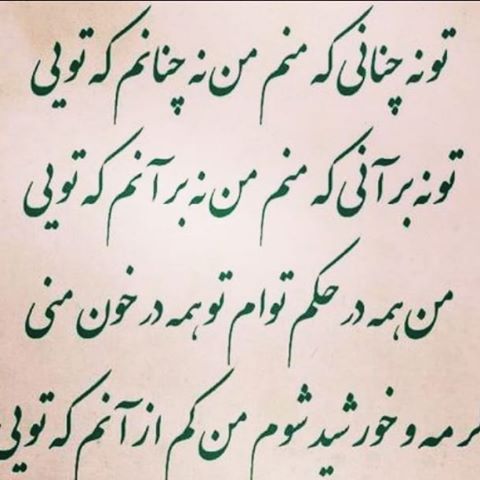 تو نه چنانی که منم من نه چنانم که تویی
تو نه بر آنی که منم من نه بر آنم که تویی
من همه در حکم توام تو همه در خون منی
ر مه و خورشید شوم من کم از آنم که تویی